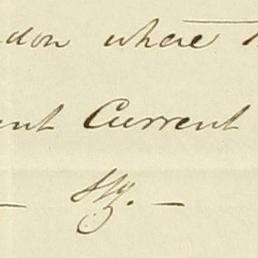 don where
ent Current